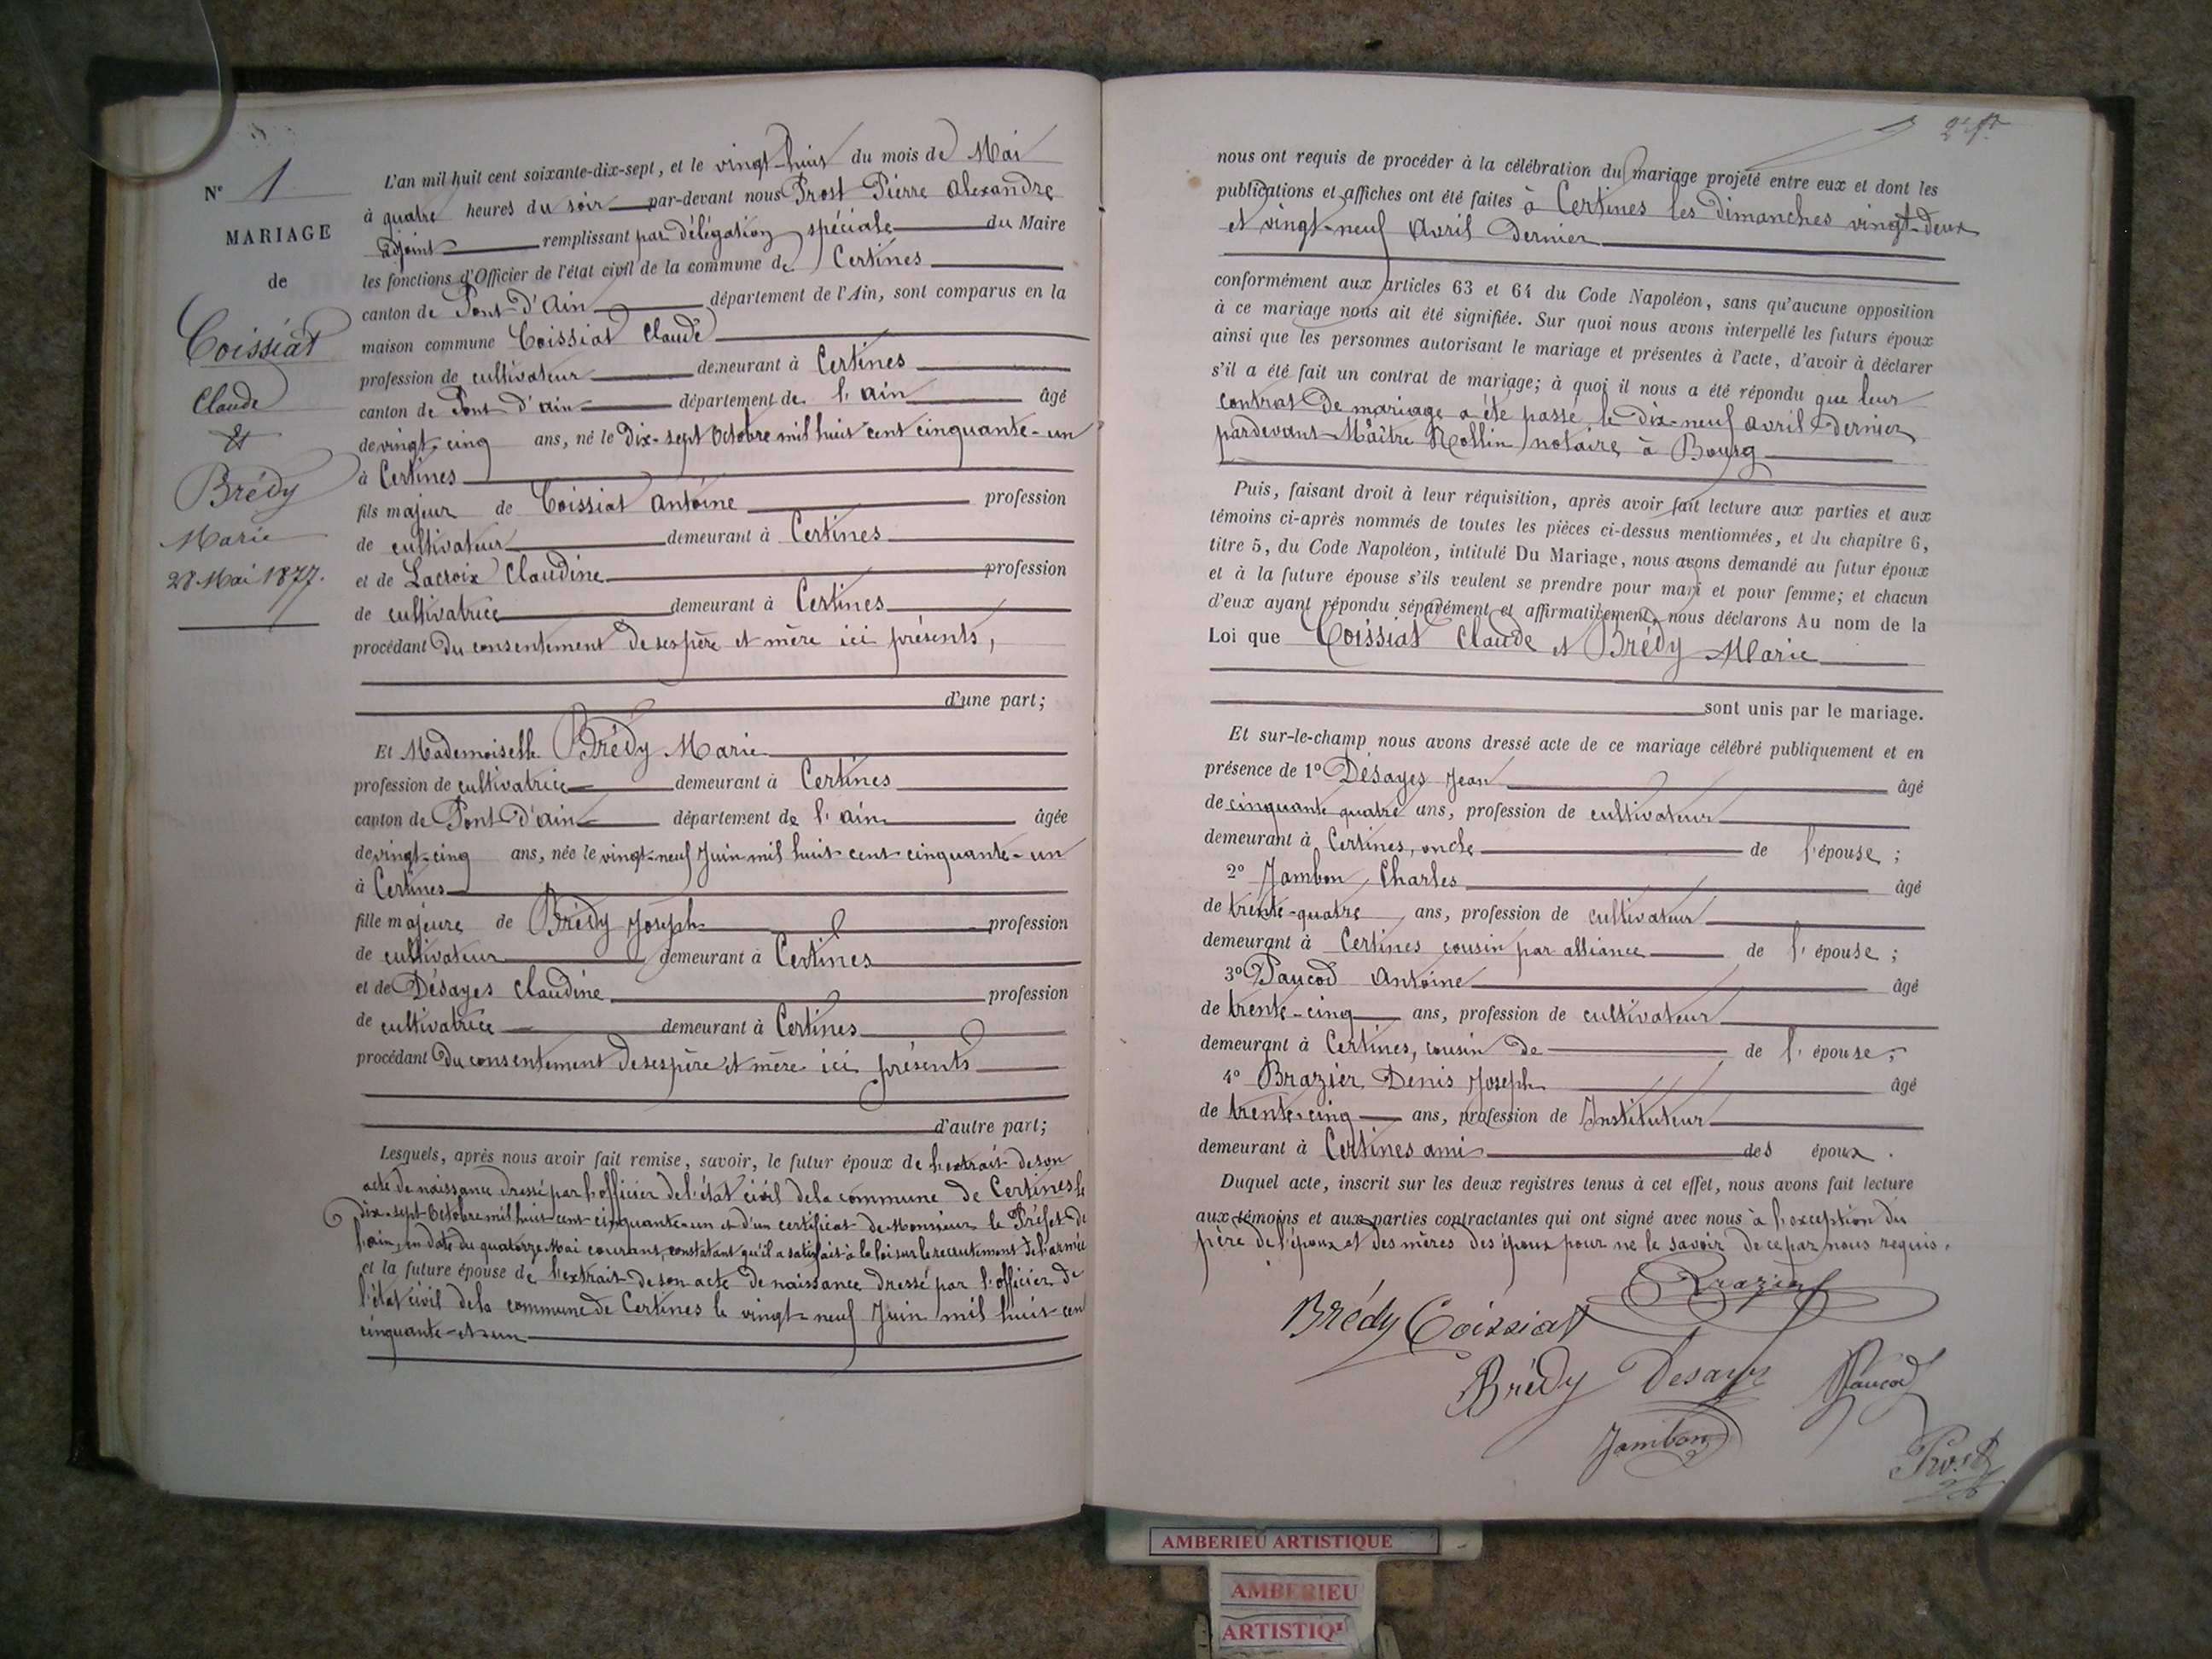 N° 1
MARIAGE
de
Coissiat
Claude
&
Brédy
Marie
28 Mai 1877.
L'an mil huit cent soixante-dix-sept, et le vingt-huit du mois de Mai
à quatre heures du soir par-devant nous Prost Pierre Alexandre
adjoint remplissant par délégation spéciale du Maire
les fonctions d'Officier de l'état civil de la commune de Certines
canton de Pont-d'Ain département de l'Ain, sont comparus en la
maison commune Coissiat Claude
profession de cultivateur demeurant à Certines
canton de Pont d'ain département de l'ain âgé
de vingt-cinq ans, né le dix-sept Octobre mil huit cent cinquante-un
à Certines
fils majeur de Coissiat Antoine profession
de cultivateur demeurant à Certines
et de Lacroix Claudine profession
de cultivatrice demeurant à Certines
procédant du consentement de ses père et mère ici présents,
d'une part;
Et Mademoiselle Brédy Marie
profession de cultivatrice demeurant à Certines
canton de Pont-d'ain département de l'ain âgée
de vingt-cinq ans, née le vingt-neuf Juin mil huit cent cinquante-un
à Certines
fille majeure de Brédy Joseph profession
de cultivateur demeurant à Certines
et de Désayes Claudine profession
de cultivatrice demeurant à Certines
procédant du consentement de ses père et mère ici présents
d'autre part;
Lesquels, après nous avoir fait remise, savoir, le futur époux de l'extrait de son
acte de naissance dressé par l'officier de l'état civil de la commune de Certines le
dix-sept Octobre mil huit cent cinquante-un et d'un certificat de Monsieur le Préfet de
l'ain, en date du quatorze Mai courant, constatant qu'il a satisfait à la loi sur le recrutement de l'armée
et la future épouse de l'extrait de son acte de naissance dressé par l'officier de
l'état civil de la commune de Certines le vingt-neuf Juin mil huit cent
cinquante-et-un
nous ont requis de procéder à la célébration du mariage projeté entre eux et dont les
publications et affiches ont été faites à Certines les dimanches vingt-deux
et vingt-neuf Avril dernier
conformément aux articles 63 et 64 du Code Napoléon, sans qu'aucune opposition
à ce mariage nous ait été signifiée. Sur quoi nous avons interpellé les futurs époux
ainsi que les personnes autorisant le mariage et présentes à l'acte, d'avoir à déclarer
s'il a été fait un contrat de mariage; à quoi il nous a été répondu que leur
contrat de mariage a été passé le dix-neuf avril dernier
pardevant Maître Rollin notaire à Bourg
Puis, faisant droit à leur réquisition, après avoir fait lecture aux parties et aux
témoins ci-après nommés de toutes les pièces ci-dessus mentionnées, et du chapitre 6,
titre 5, du Code Napoléon, intitulé Du Mariage, nous avons demandé au futur époux
et à la future épouse s'ils veulent se prendre pour mari et pour femme; et chacun
d'eux ayant répondu séparément et affirmativement, nous déclarons Au nom de la
Loi que Coissiat Claude et Brédy Marie
sont unis par le mariage.
Et sur-le-champ nous avons dressé acte de ce mariage célébré publiquement et en
présence de 1° Désayes Jean âgé
de cinquante quatre ans, profession de cultivateur
demeurant à Certines, oncle de l'épouse;
2° Jambon Charles âgé
de trente-quatre ans, profession de cultivateur
demeurant à Certines cousin par alliance de l'épouse;
3° Paucod Antoine âgé
de trente-cinq ans, profession de cultivateur
demeurant à Certines, cousin de de l'épouse;
4° Brazier Denis Joseph âgé
de trente-cinq ans, profession de Instituteur
demeurant à Certines ami des époux.
Duquel acte, inscrit sur les deux registres tenus à cet effet, nous avons fait lecture
aux témoins et aux parties contractantes qui ont signé avec nous à l'exception du
père de l'époux et des mères des époux pour ne le savoir de ce par nous requis.
Brazier
Brédy Coissiat
Brédy Desayes Paucod
Jambon
Prost
AMBERIEU ARTISTIQUE
AMBERIEU
ARTISTIQ